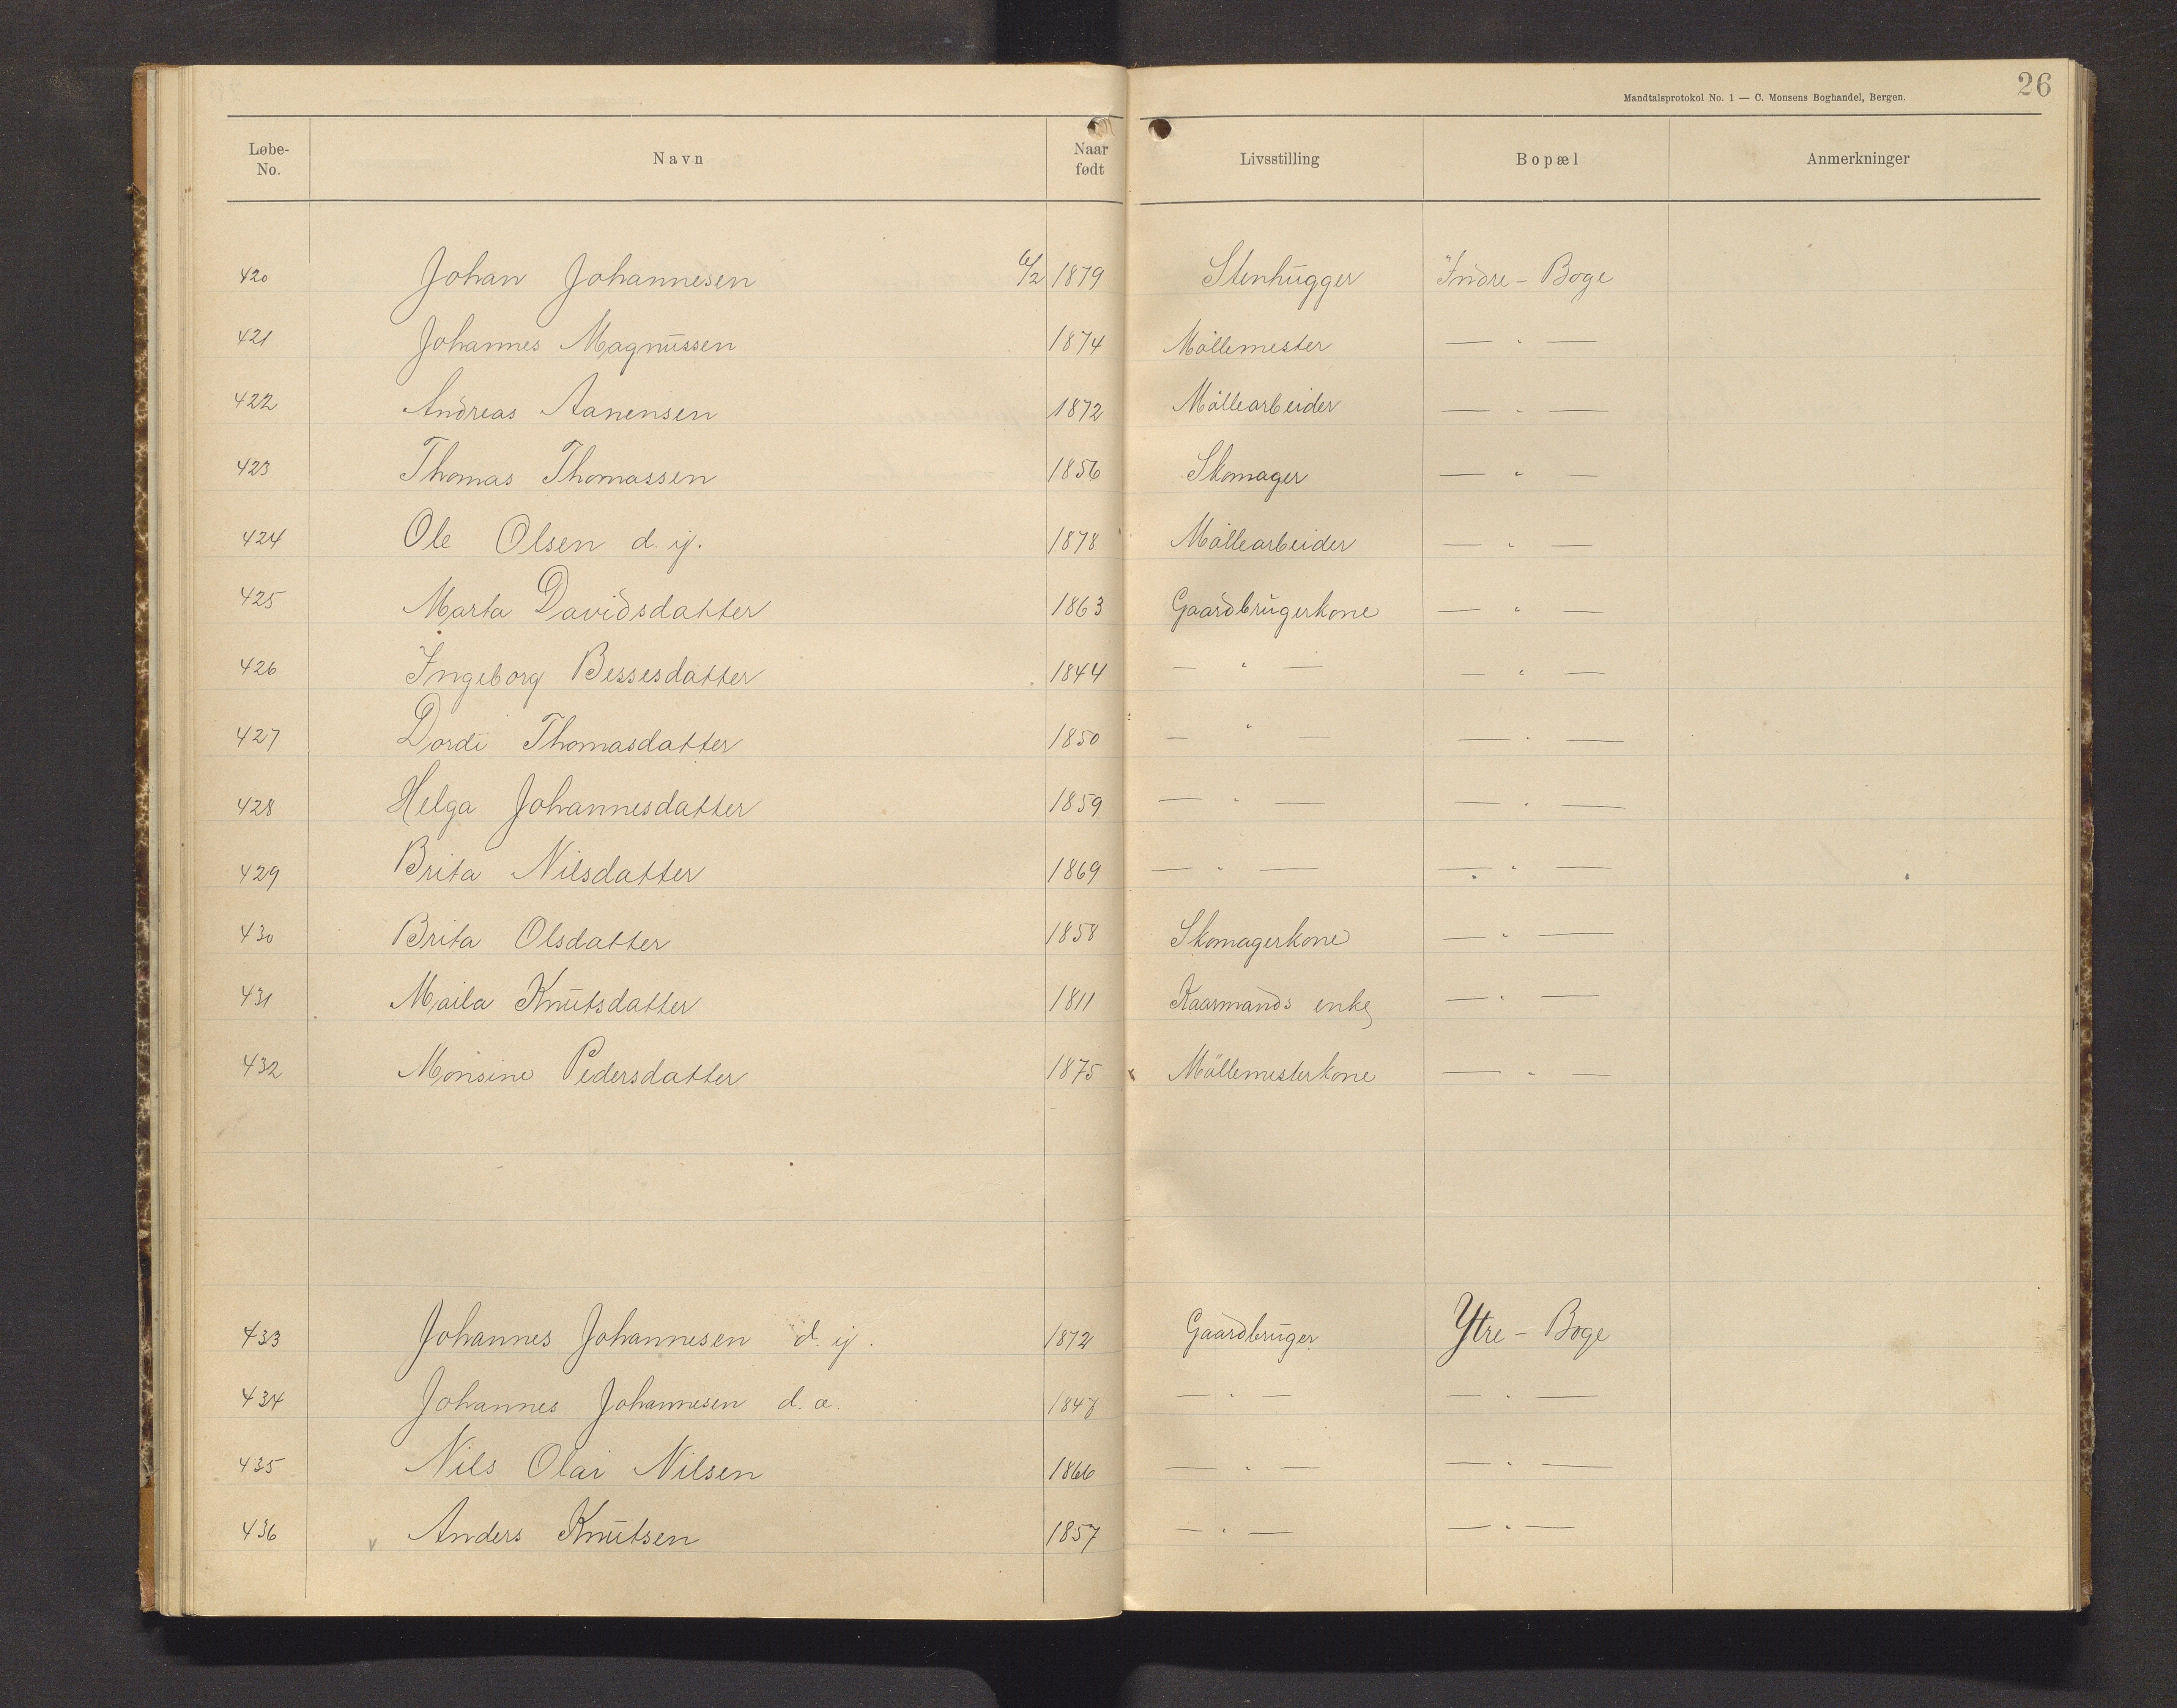 26
Mandtalsprotokol No. 1 — C. Monsens Boghandel, Bergen.
Løbe-No. Navn Naar født Livsstilling Bopæl Anmerkninger
420 Johan Johannesen 6/2 1879 Stenhugger Indre - Boge
421 Johannes Magnussen 1874 Möllemester — " —
422 Andreas Aanensen 1872 Möllearbeider — " —
423 Thomas Thomassen 1856 Skomager — " —
424 Ole Olsen d. y. 1878 Möllearbeider — " —
425 Marta Davidsdatter 1863 Gaardbrugerkone — " —
426 Ingeborg Bessesdatter 1844 — " — — " —
427 Dordi Thomasdatter 1850 — " — — " —
428 Helga Johannesdatter 1859 — " — — " —
429 Brita Nilsdatter 1869 — " — — " —
430 Brita Olsdatter 1858 Skomagerkone — " —
431 Maila Knutsdatter 1811 Kaarmands enke — " —
432 Monsine Pedersdatter 1875 Möllemesterkone — " —
433 Johannes Johannesen d. y. 1872 Gaardbruger Ytre - Boge
434 Johannes Johannesen d. æ. — " — — " —
435 Nils Olai Nilsen 1866 — " — — " —
436 Anders Knutsen 1857 — " — — " —